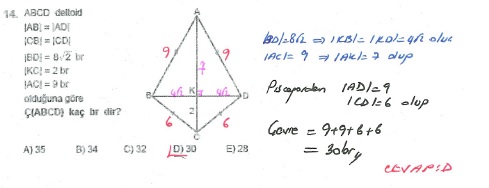 14. ABCD deltoid
|AB| = |AD|
|CB| = |CD|
|BD| = 8√2 br
|KC| = 2 br
|AC| = 9 br
olduğuna göre
Ç(ABCD) kaç br dir?
A) 35 B) 34 C) 32 D) 30 E) 28
A
9 9
7
B 4√2 K 4√2 D
2
6 6
C
|BD|=8√2 ⇒ |KB|=|KD|=4√2 olur
|AC|=9 ⇒ |AK|=7 olup
Pisagordan |AD|=9
|CD|=6 olup
Çevre = 9+9+6+6
= 30 br
CEVAP: D